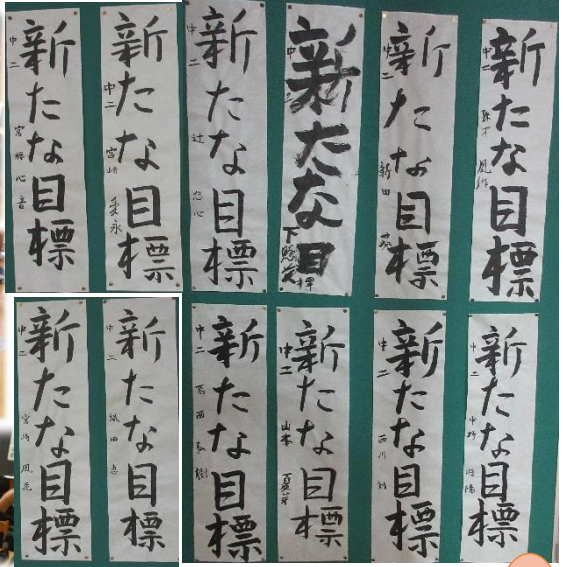 新たな目標
中二
新たな目標
中二 宮崎
新たな目標
中二 辻
新たな目標
中二
新たな目標
中二 新田
新たな目標
中二
新たな目標
中二 宮崎 風花
新たな目標
中二
新たな目標
中二 葛西
新たな目標
中二 山本 夏芽
新たな目標
中二 西川
新たな目標
中二 中野